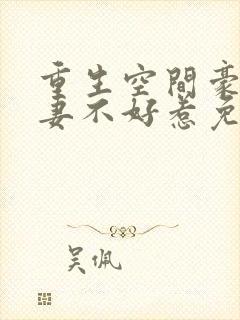 重生空間豪
妻不好惹免
吳佩